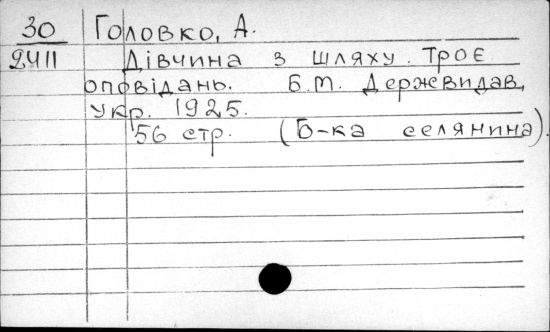 30 Головко, А.
2411 Дівчина з шляху. Троє
оповідань. Б.м. Держвидав,
Укр. 1925.
56 стр. (Б-ка селянина).